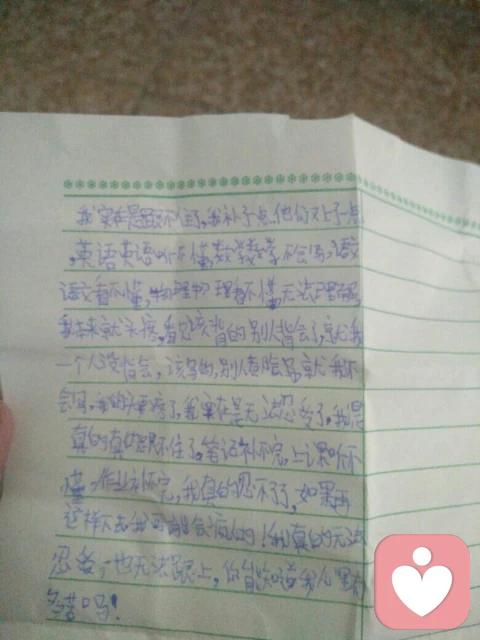 我实在是跟不住了,我补了一点他们又上了一点
,英语英语听不懂,数学数学不会写,语文
语文看不懂,物理物理看不懂,无法理解,
我本来就头疼,看见该背的别人背会了,就我
一个人没背会,该写的,别人都会写就我不
会写,我的头更疼了,我实在是无法忍受了,我是
真的真的跟不住了。笔记补不完,上课听不
懂,作业补不完,我真的忍不了了,如果再
这样下去我可能会疯的!我真的无法
忍受,也无法跟上,你能知道我心里有
多苦吗!